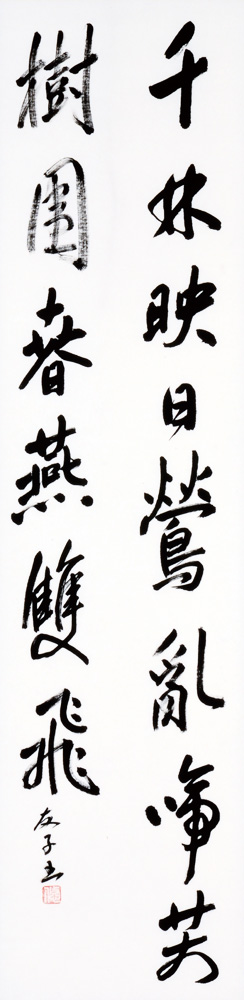 千林映日鶯亂啼萬
樹圍春燕雙飛
友子書